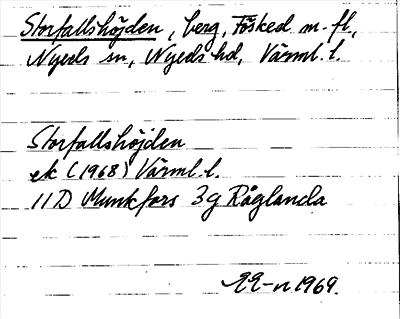 Storfallshöjden, berg, Fösked m. fl.,
Nyeds sn, Nyeds hd, Värml. l.
Storfallshöjden
ek (1968) Värml. l.
11D Munkfors 3g Råglanda
1969.